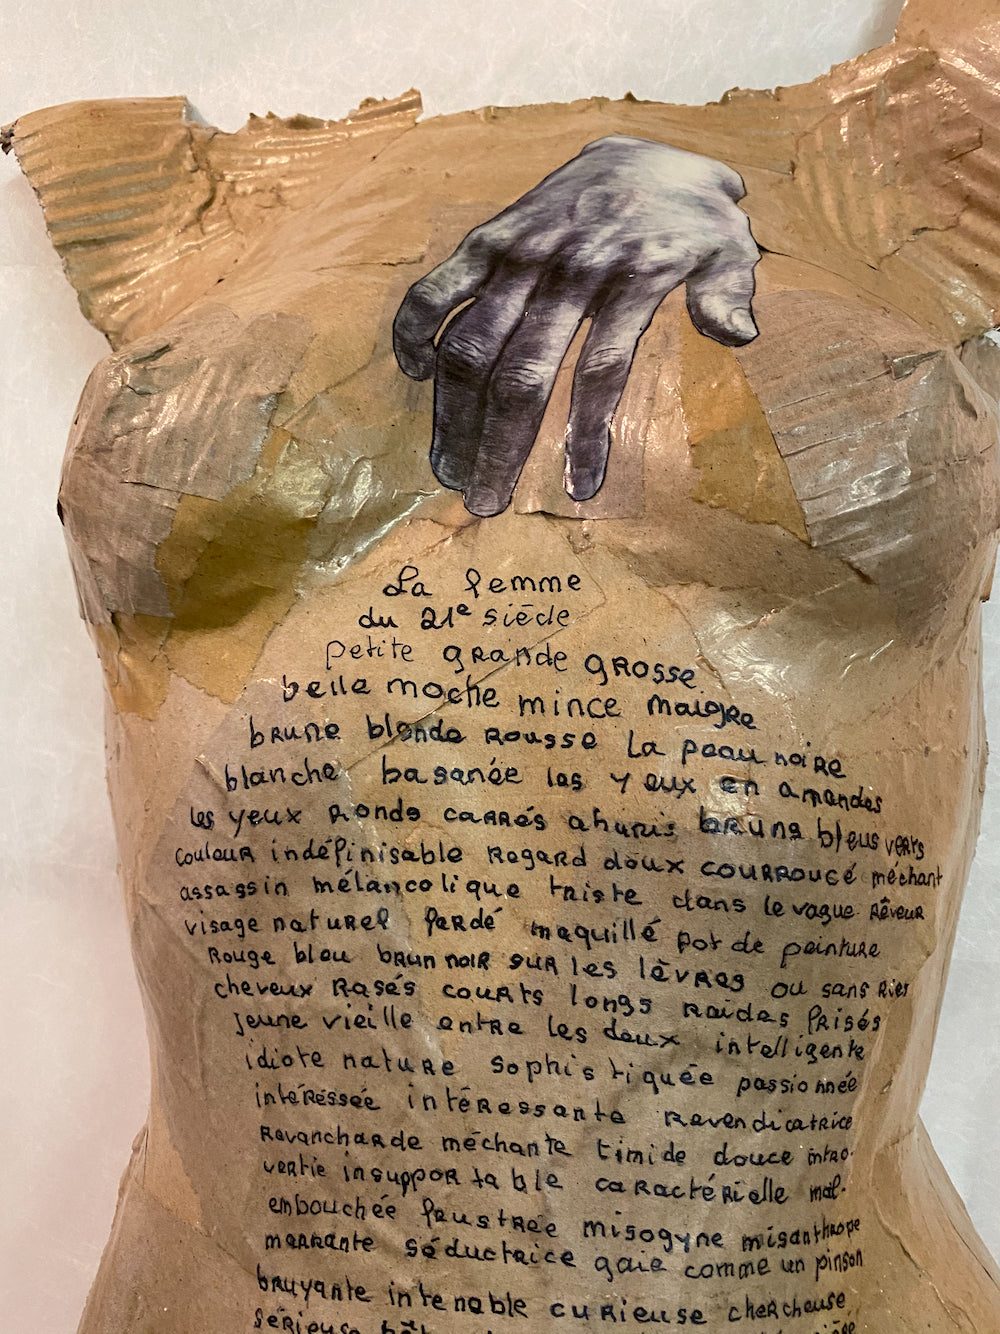 La femme
du 21e siècle
petite grande grosse
belle moche mince maigre
brune blonde rousse la peau noire
blanche basanée les yeux en amandes
les yeux ronds carrés ahuris bruns bleus verts
couleur indéfinisable regard doux courroucé méchant
assassin mélancolique triste dans le vague rêveur
visage naturel fardé maquillé pot de peinture
rouge bleu brun noir sur les lèvres ou sans rien
cheveux rasés courts longs raides frisés
jeune vieille entre les deux intelligente
idiote nature sophistiquée passionnée
intéréssée intéressante revendicatrice
revancharde méchante timide douce intro-
vertie insupportable caractérielle mal-
embouchée frustrée misogyne misanthrope
marrante séductrice gaie comme un pinson
bruyante intenable curieuse chercheuse
sérieuse